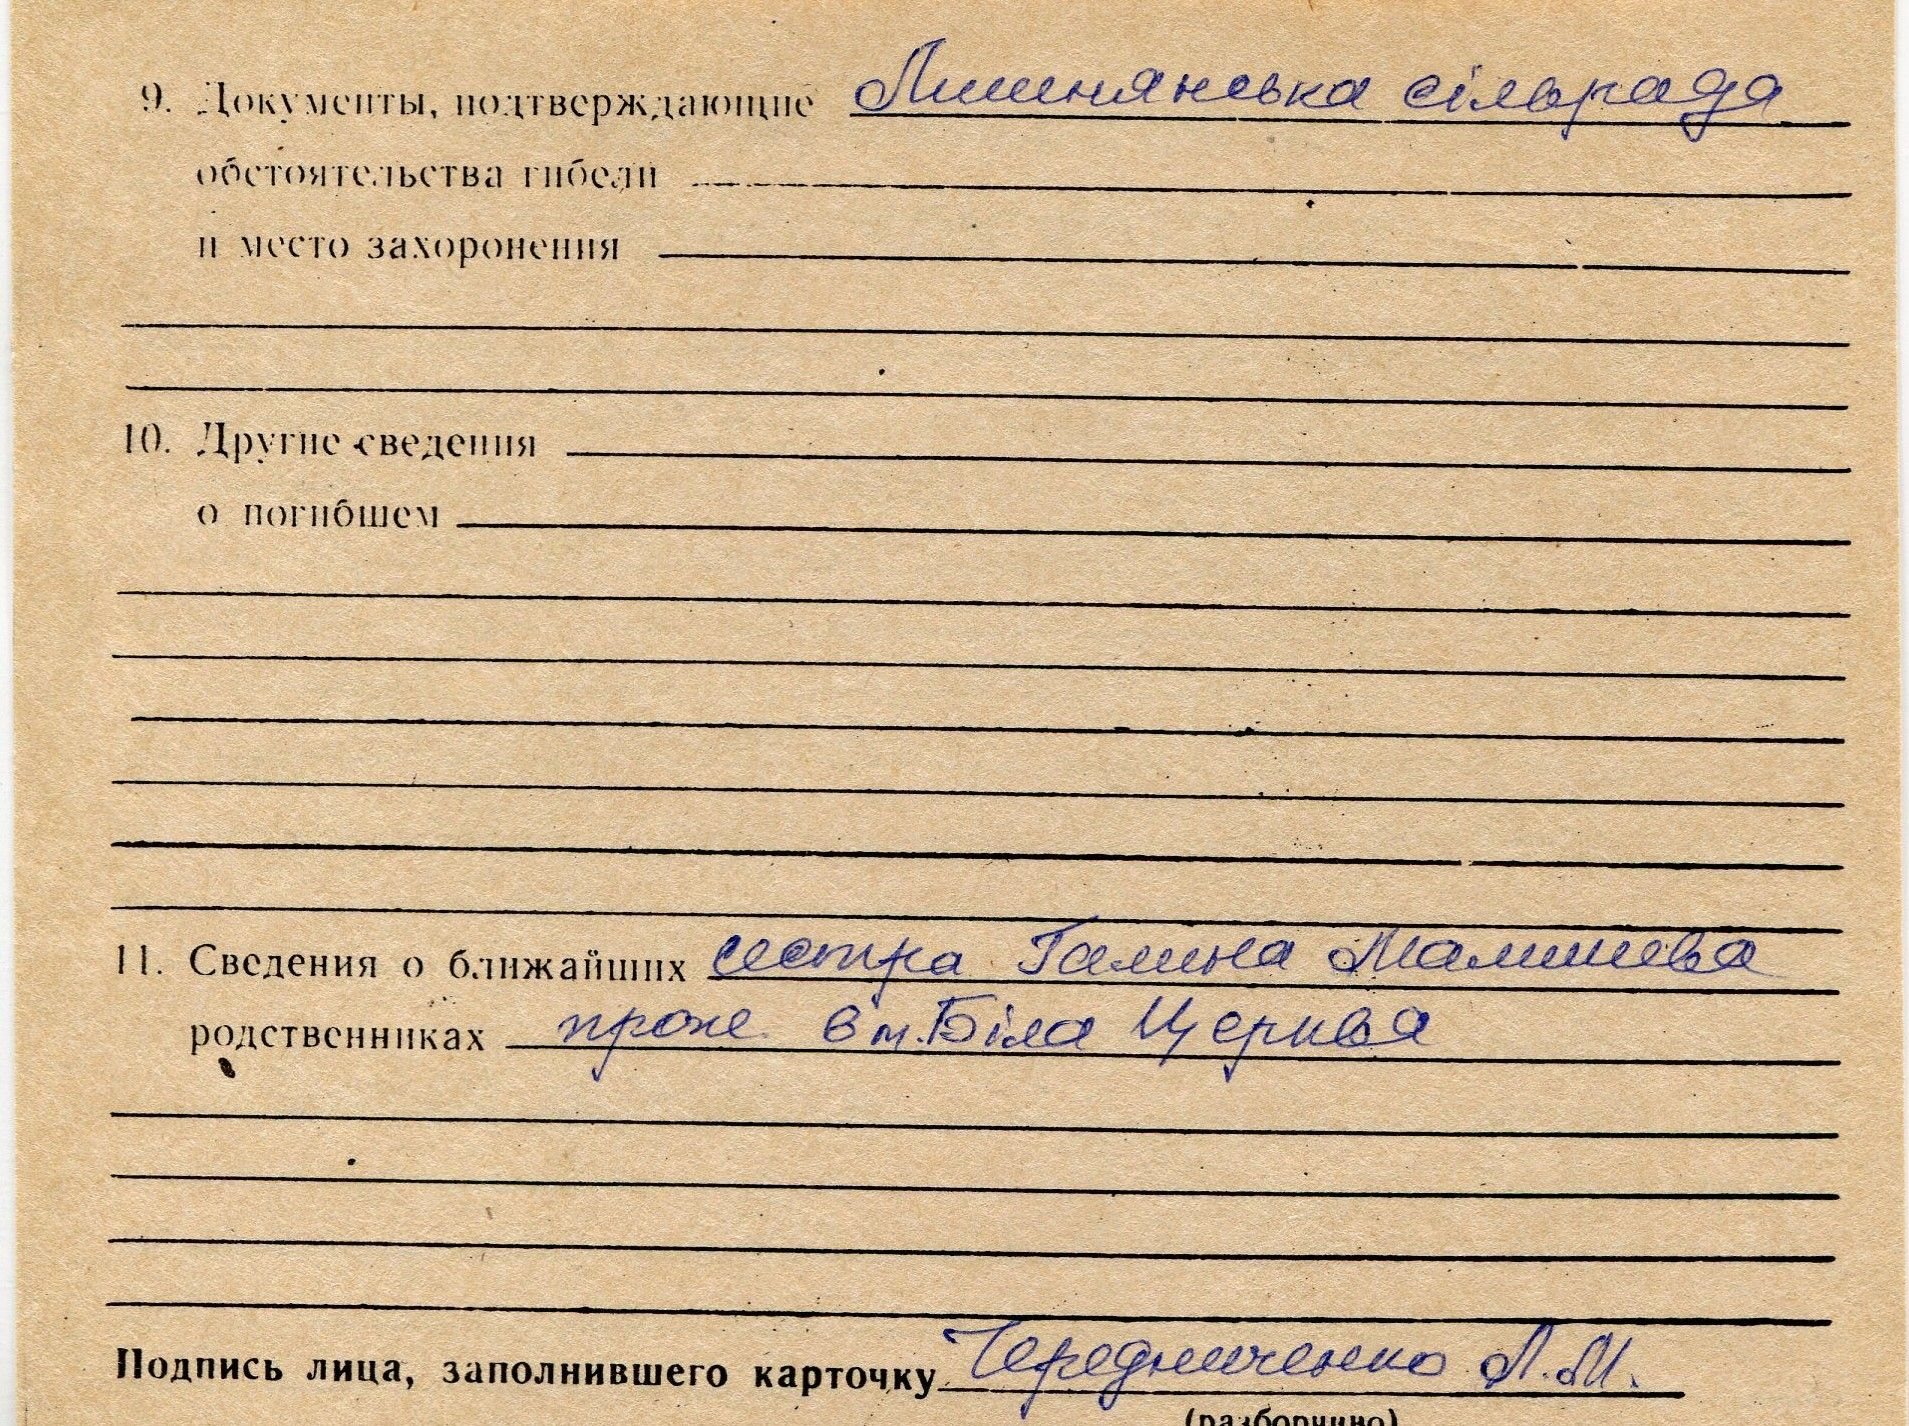 9. Документы, подтверждающие Лишнянська сільрада
обстоятельства гибели
и место захоронения
10. Другие сведения
о погибшем
11. Сведения о ближайших сестра Галина
родственниках прож. в м. Біла Церква
Подпись лица, заполнившего карточку Чередниченко Л.М.
(разборчиво)